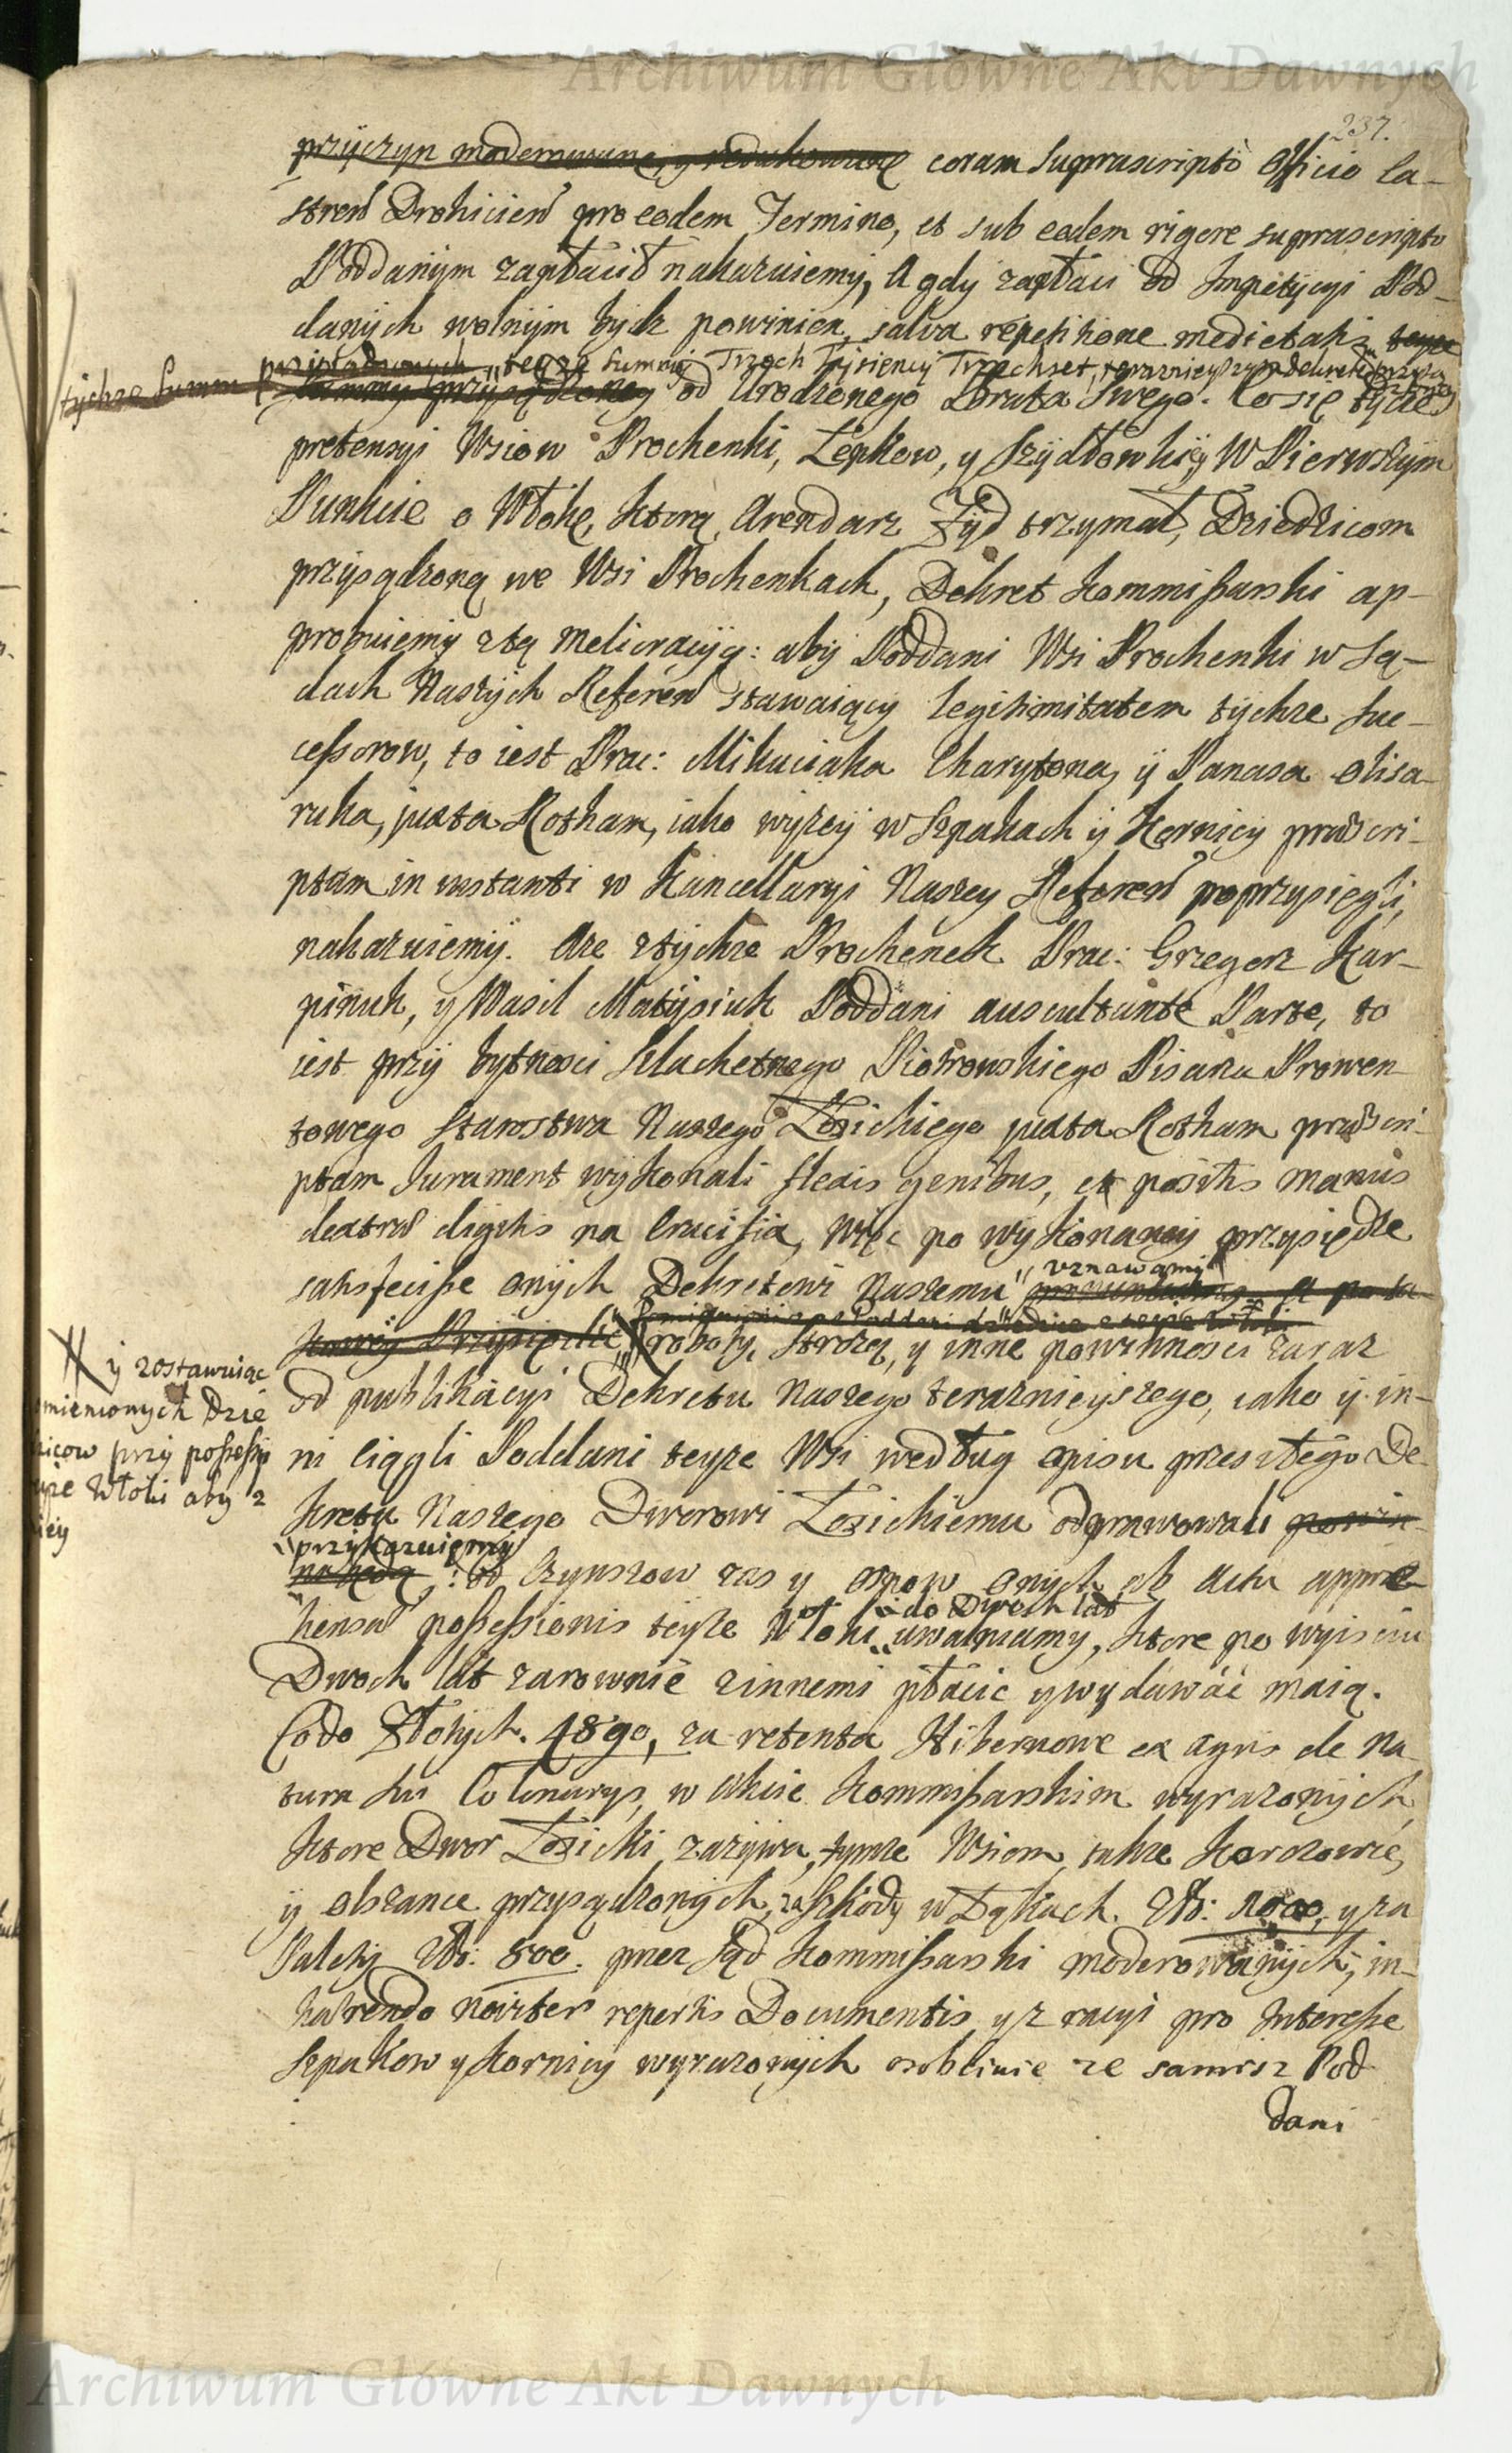 Archiwum Główne Akt Dawnych
237.
przyczyn moderowane, y redukowane coram Suprascripto Officio Ca-
stren Drohicien pro eodem Termino, et sub eodem rigore suprascripto
Poddanym zapłacił nakazuiemy, A gdy zapłaci od Impetycyi Pod-
danych wolnym bydz powinien, salva repetitione medietatis teyże
przysądzonych teyże Summy Trzech Tysięcy Trzechset, teraznieyszym Dekretem przysą
tychże Summ
Summy przysądzoney od Urodzonego Brata Swego. Co się tycze
pretensyi Wsiow Prochenki, Lepkow, y Szydłowki, W Pierwszym
Punkcie o Włokę, ktorą Arendarz Żyd trzymał, Dziedzicom
przysądzoną we Wsi Prochenkach, Dekret Kommissarski ap-
probuiemy z tą melioracyją: aby Poddani Wsi Prochenki w Są-
dach Naszych Referen stawaiący legitimitatem tychże Suc-
cessorow, to iest Prac: Mikuciaka Charytona, y Panasa Olisa-
ruka, juxta Rotham, iako wyżey w Szpakach y Kornicy præscri-
ptam in instanti w Kancellaryi Naszey Referen poprzysięgli,
nakazuiemy. A że z tychże Prochenek Prac: Grzegorz Kar-
piuk, y Wasil Matysiuk Poddani auscultante Parte, to
iest przy bytnosci Szlachetnego Piotrowskiego Pisarza Prowen
towego Starostwa Naszego Łosickiego juxta Rotham præscri-
ptam Jurament wykonali flexis genibus, et positis manus
dextræ digitis na Crucifix, Więc po wykonaney przysiędze
satisfecisse onych Dekretowi Naszemu uznawamy
A po ta
kowey Przysiędze roboty, Strożą, y inne powinnosci zaraz
X y zostawuiąc
od publikacyi Dekretu Naszego teraznieyszego, iako y in-
mienionych Dzie
ni ciągli Poddani teyże Wsi według opisu przeszłego De-
dzicow przy possessyi
kretu Naszego Dworowi Łosickiemu odprawowali powin-
teyże Włoki aby z
niey
przykazuiemy
ni będą: od Czynszow zas y osepow onych ab actu appre-
do Dwoch lat
hensæ possessionis teyże Włoki uwalniamy, ktore po wyisciu
Dwoch lat zarownie z innemi płacic y wydawać maią.
Co do Złotych. 4890, za retenta Hibernowe ex agris de na-
tura sui Colonarys, w Akcie Kommissarskim wyrazonych,
ktore Dwor Łosicki zażywa, tymże Wsiom, także Karczowie,
y Olszance przysądzonych, za szkody w Łąkach. Zł: 1000, y za
Zł: 800. przez Sąd Kommissarski moderowanych, in-
hærendo noviter repertis Documentis y z racyi pro Interesse
Szpakow y Kornicy wyrazonych osobliwie ze samisz Pod
dani
Archiwum Główne Akt Dawnych